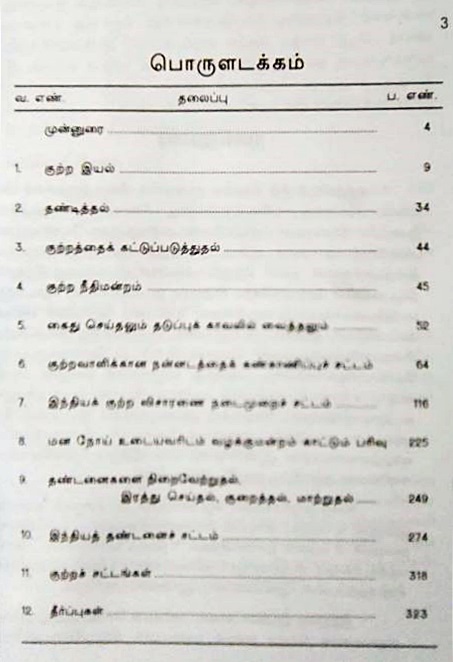 3
பொருளடக்கம்
வ. எண். தலைப்பு ப. எண்.
முன்னுரை 4
1. குற்ற இயல் 9
2. தண்டித்தல் 34
3. குற்றத்தைக் கட்டுப்படுத்துதல் 44
4. குற்ற நீதிமன்றம் 45
5. கைது செய்தலும் தடுப்புக் காவலில் வைத்தலும் 52
6. குற்றவாளிக்கான நன்னடத்தைக் கண்காணிப்புச் சட்டம் 64
7. இந்தியக் குற்ற விசாரணை நடைமுறைச் சட்டம் 116
8. மன நோய் உடையவரிடம் வழக்குமன்றம் காட்டும் பரிவு 225
9. தண்டனைகளை நிறைவேற்றுதல்,
இரத்து செய்தல், குறைத்தல், மாற்றுதல் 249
10. இந்தியத் தண்டனைச் சட்டம் 274
11. குற்றச் சட்டங்கள் 318
12. தீர்ப்புகள் 323